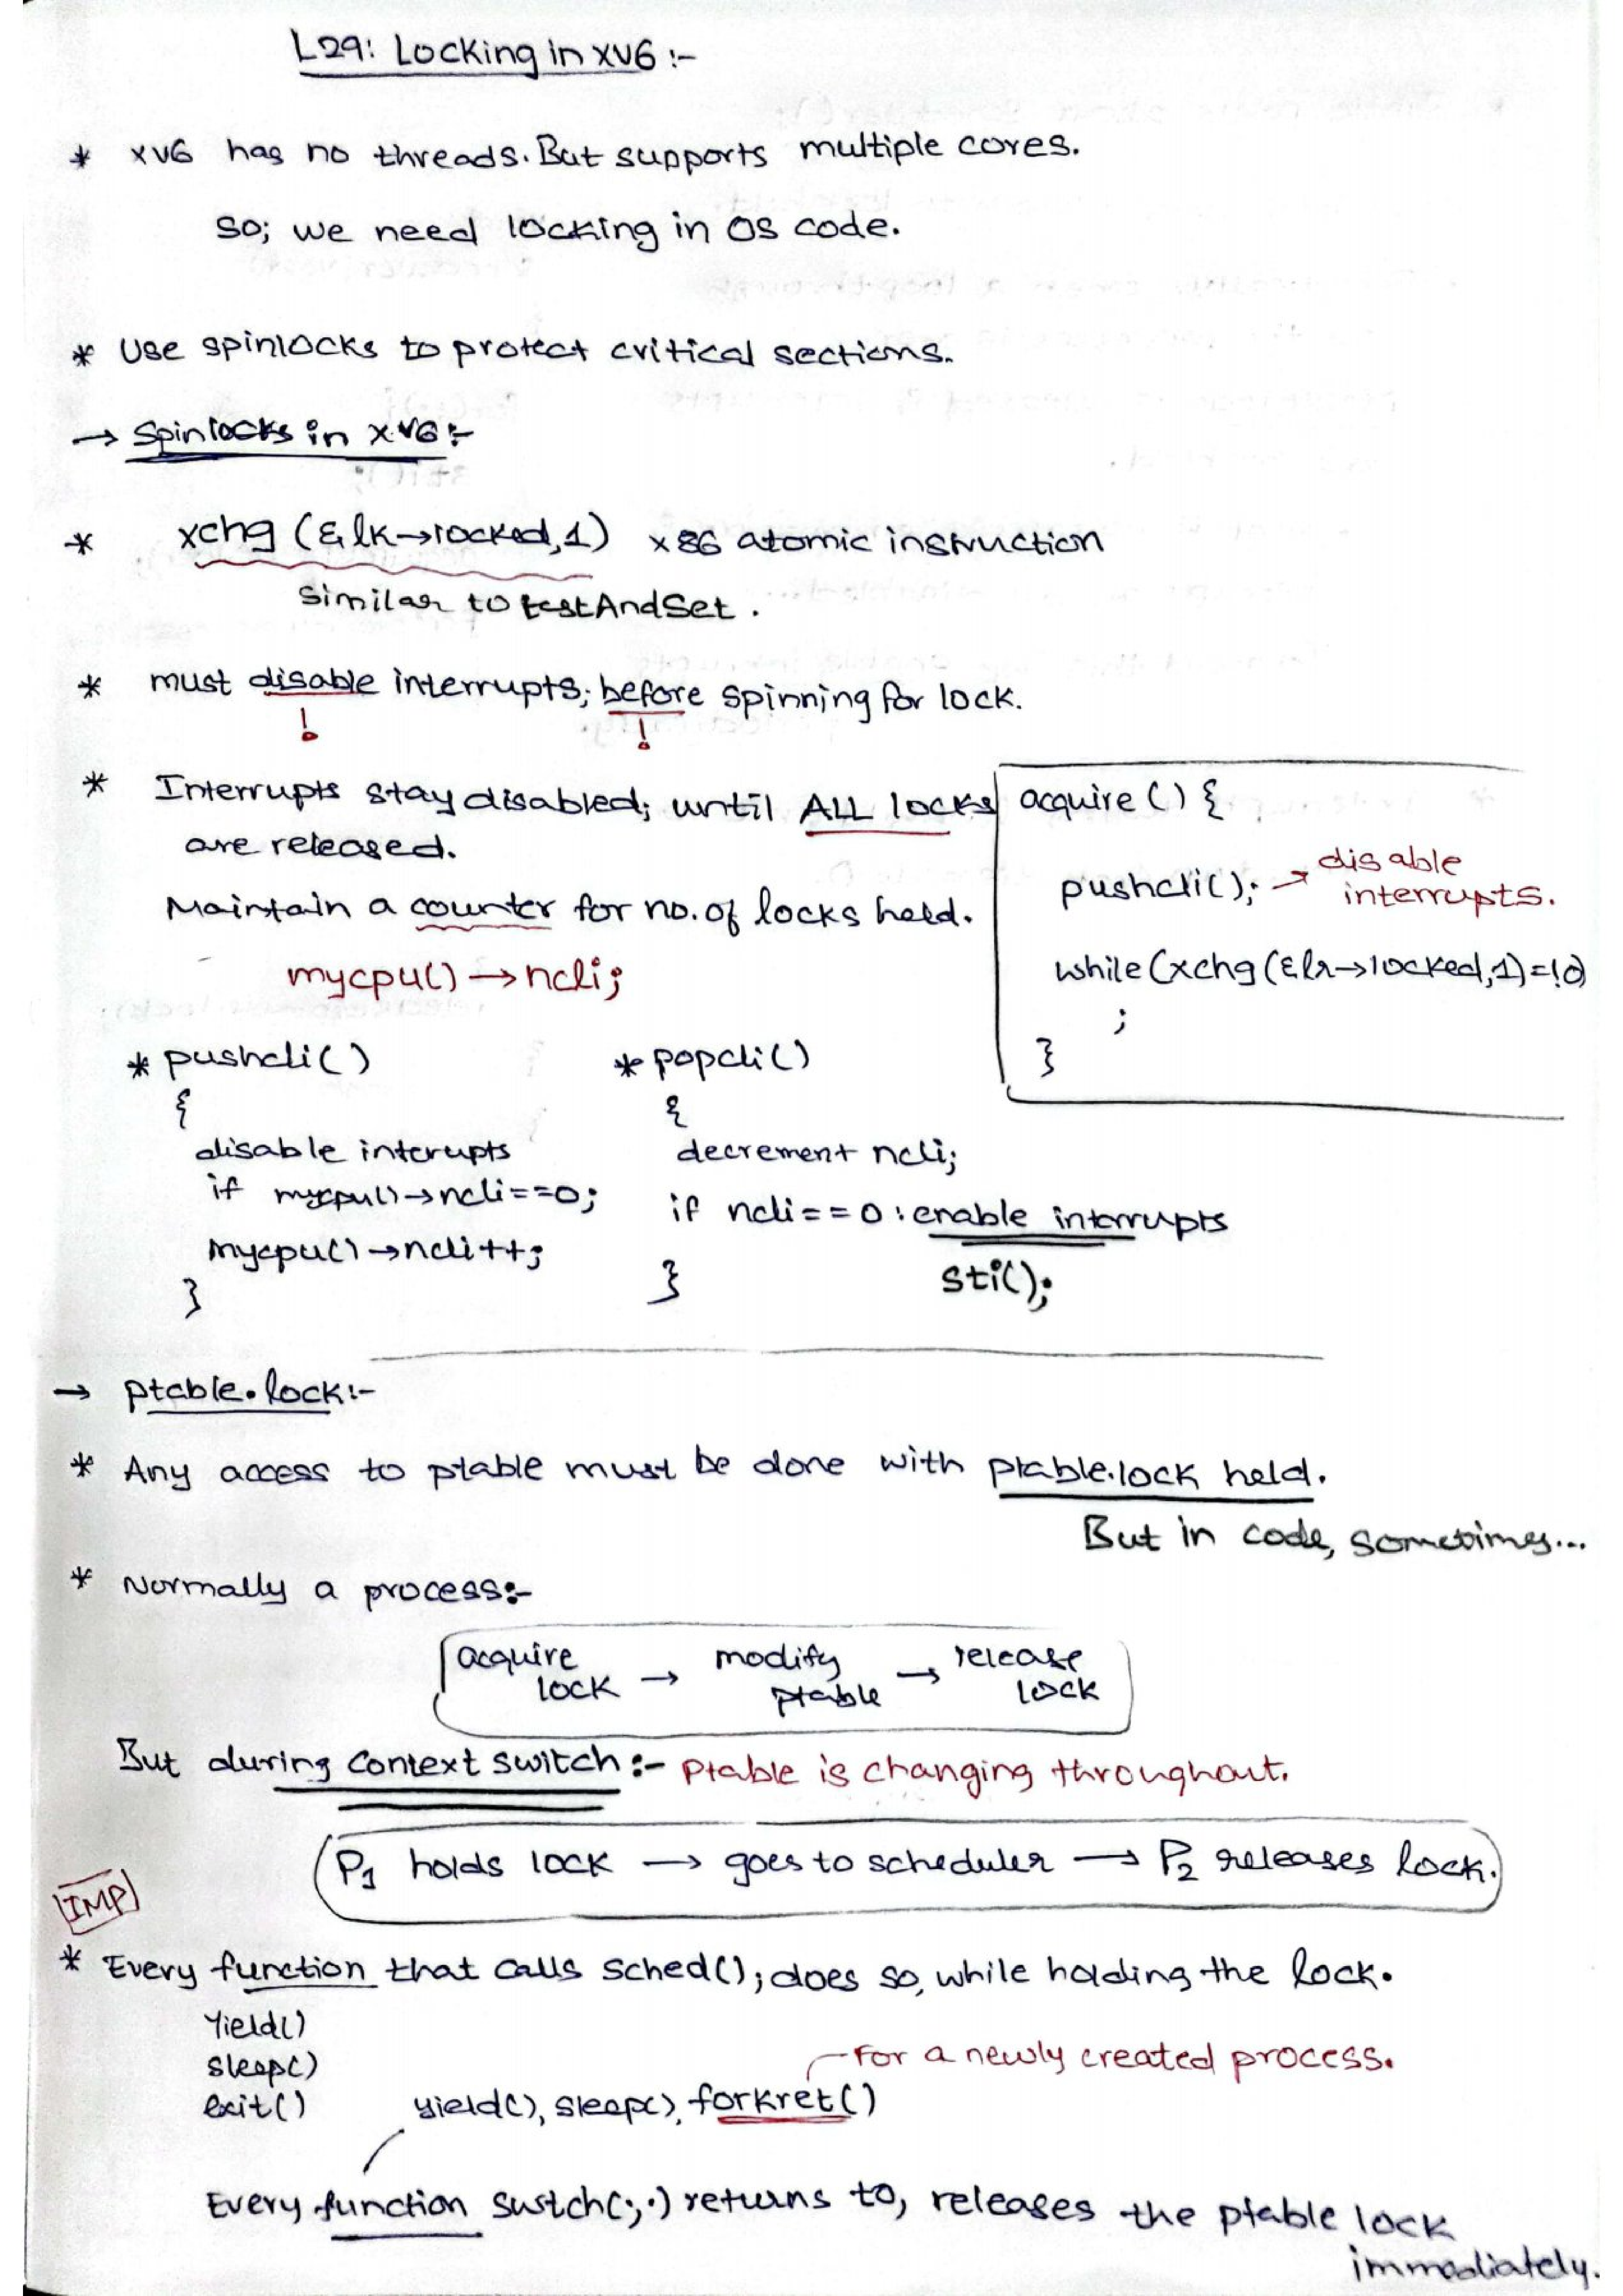 L29: Locking in xv6 :-
* xv6 has no threads. But supports multiple cores.
So; we need locking in OS code.
* Use spinlocks to protect critical sections.
→ Spinlocks in xv6 :-
* xchg (&lk→locked,1) x86 atomic instruction
Similar to testAndSet .
* must disable interrupts; before spinning for lock.
! !
* Interrupts stay disabled; until ALL locks
are released.
Maintain a counter for no. of locks held.
mycpu() → ncli;
acquire () {
pushcli(); → disable
interrupts.
while(xchg(&lk→locked,1)=!0)
;
}
* pushcli()
{
disable interupts
if mycpu()→ncli==0;
mycpu()→ncli++;
}
* popcli()
{
decrement ncli;
if ncli==0 : enable interrupts
sti();
}
→ ptable.lock:-
* Any access to ptable must be done with ptable.lock held.
But in code, sometimes...
* Normally a process:-
acquire lock → modify ptable → release lock
But during context switch :- Ptable is changing throughout.
P1 holds lock → goes to scheduler → P2 releases lock.
IMP
* Every function that calls sched(); does so, while holding the lock.
Yield()
sleep()
exit()
For a newly created process.
yield(), sleep(), forkret()
Every function swtch(;.) returns to, releases the ptable lock
immediately.